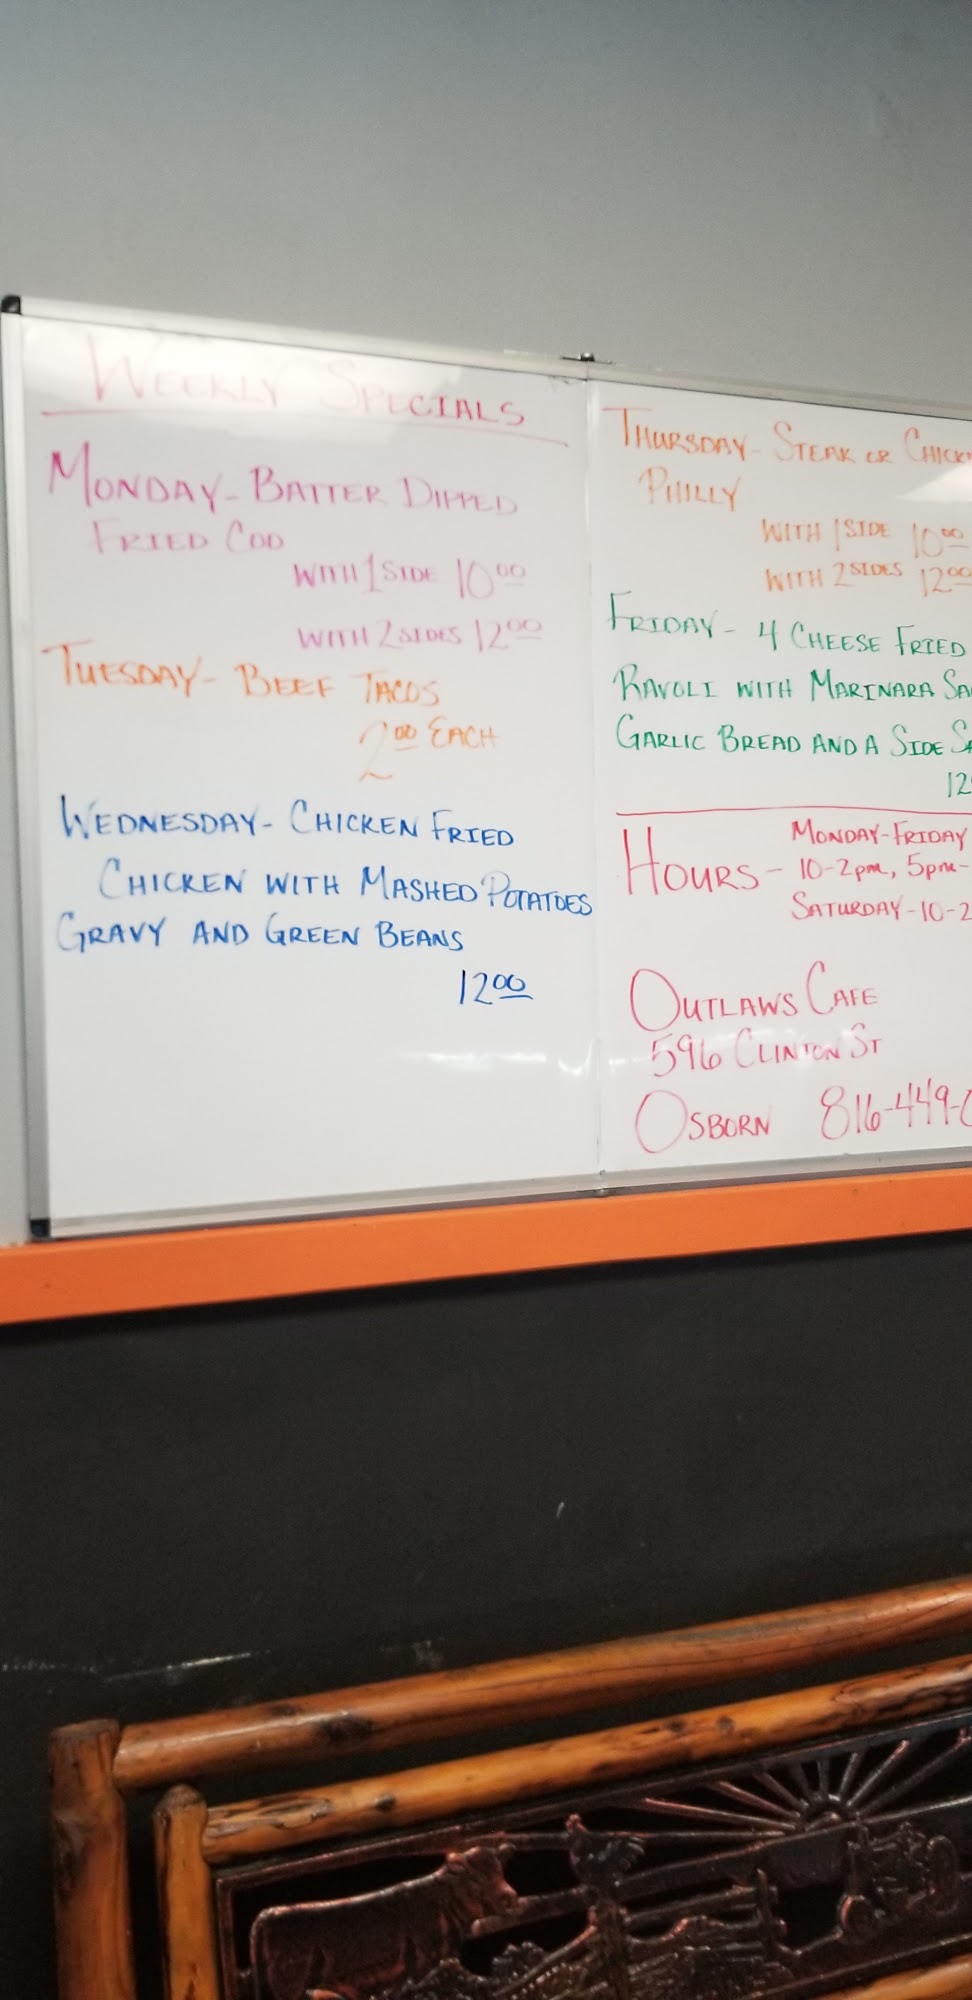 WEEKLY SPECIALS
MONDAY- BATTER DIPPED
FRIED COD
WITH 1 SIDE 10 00
WITH 2 SIDES 12 00
TUESDAY- BEEF TACOS
2 00 EACH
WEDNESDAY- CHICKEN FRIED
CHICKEN WITH MASHED POTATOES
GRAVY AND GREEN BEANS
12 00
THURSDAY- STEAK OR
PHILLY
WITH 1 SIDE 10 00
WITH 2 SIDES 12 00
FRIDAY- 4 CHEESE FRIED
RAVOLI WITH MARINARA
GARLIC BREAD AND A SIDE
12
HOURS- MONDAY-FRIDAY
10-2pm, 5pm-
SATURDAY-10-2
OUTLAWS CAFE
596 CLINTON ST
OSBORN 816-449-